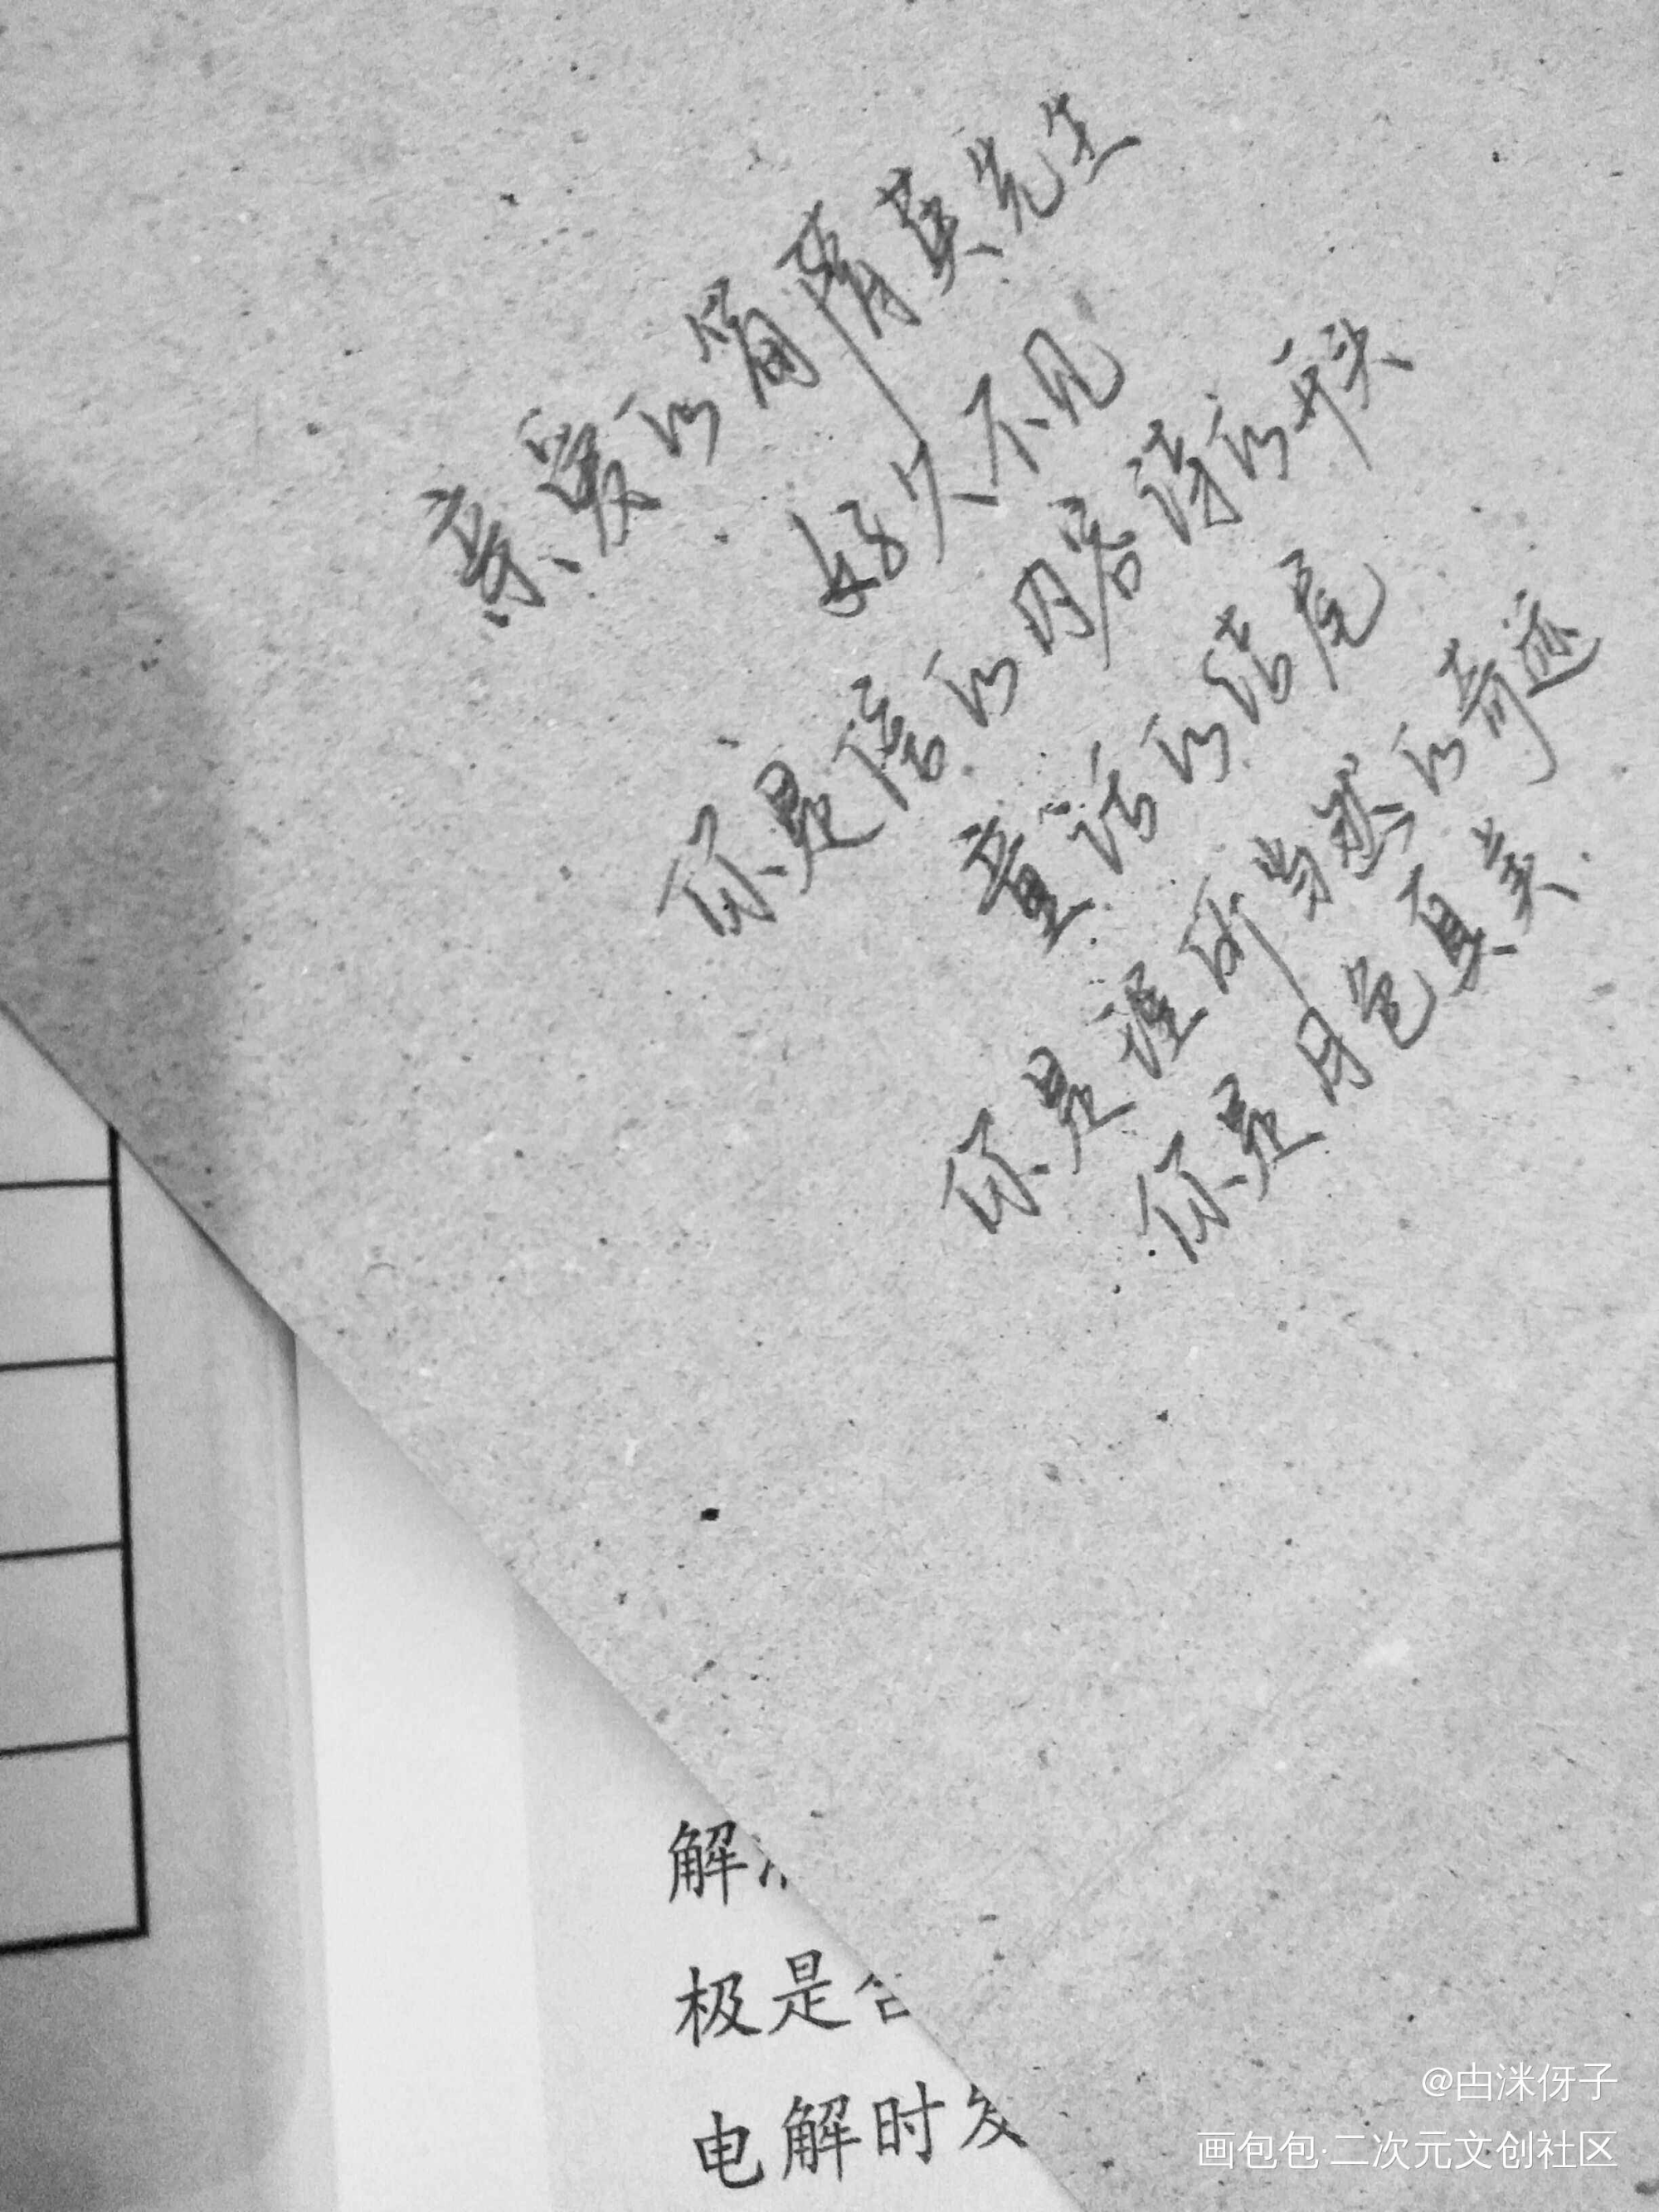 亲爱的简隋英先生
好久不见
你是信的内容诗的开头
童话的结尾
你是理所当然的奇迹
你是月色真美
解
极是
电解时发
@由洣伢子
画包包·二次元文创社区